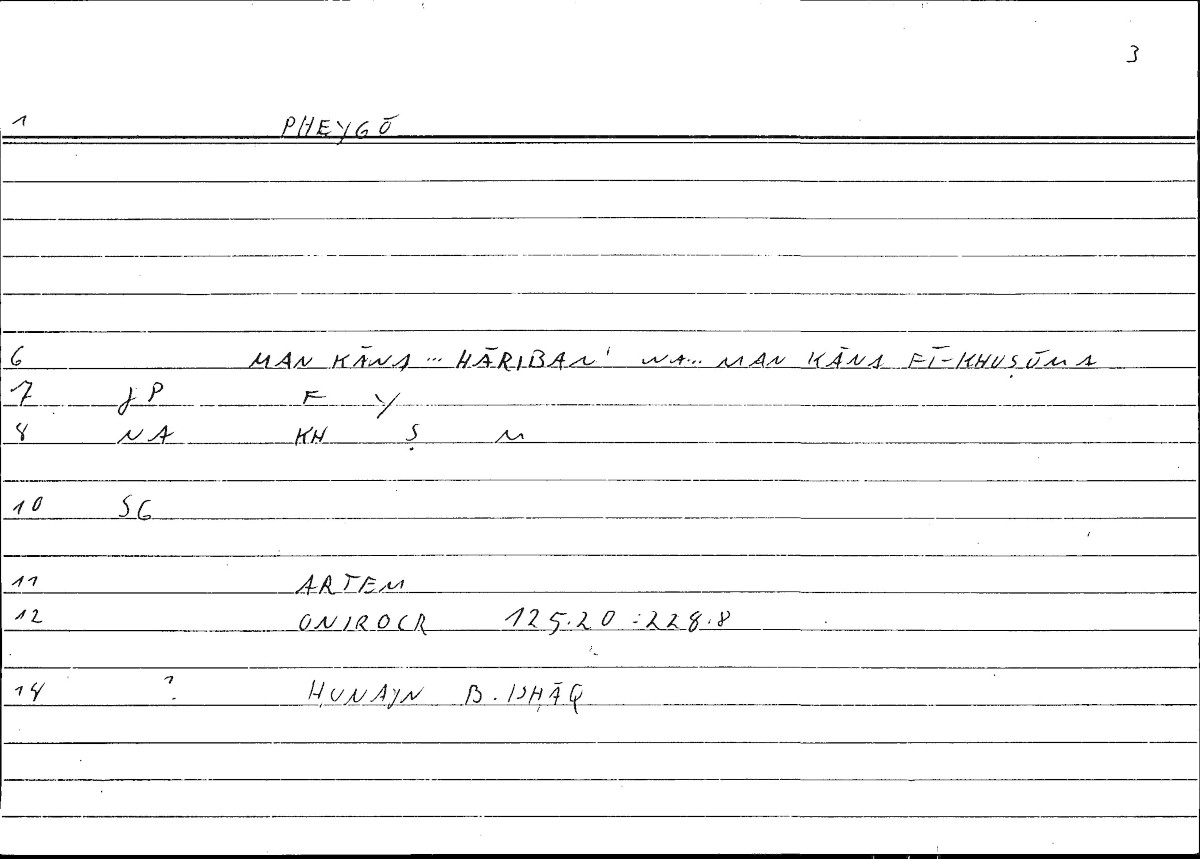 3
1 PHEYGŌ
6 MAN KĀNA ... HĀRIBAN' WA... MAN KĀNA FĪ-KHUṢŪMA
7 JP F Y
8 NA KH Ṣ M
10 SG
11 ARTEM
12 ONIROCR 125.20 = 228.8
14 ? ḤUNAYN B. ISḤĀQ